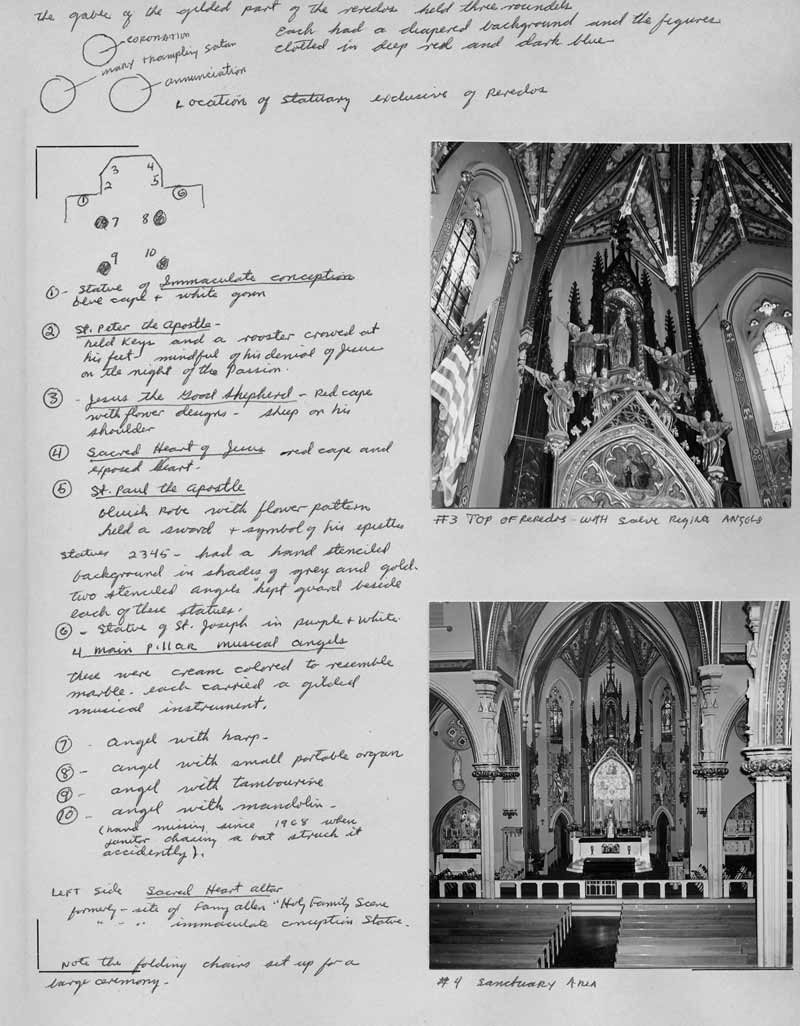 the gable of the gilded part of the reredos held three roundels
Each had a diapered background and the figures
clothed in deep red and dark blue
CORONATION
mary trampling satan
annunciation
Location of statuary exclusive of Reredos
3 4
2 5
① ⑥
7 8
9 10
① - Statue of Immaculate conception
blue cape + white gown
② St. Peter the Apostle -
held Keys and a rooster crowed at
his feet - mindful of his denial of Jesus
on the night of the Passion.
③ - Jesus the Good Shepherd - Red cape
with flower designs - sheep on his
shoulder
④ Sacred Heart of Jesus red cape and
exposed heart.
⑤ St. Paul the Apostle
bluish Robe with flower pattern
held a sword + symbol of his epistles
Statues 2345 - had a hand stenciled
background in shades of grey and gold.
two stenciled angels "kept guard beside
each of these statues.
⑥ - Statue of St. Joseph in purple + white.
4 main Pillar musical angels
these were cream colored to resemble
marble. each carried a gilded
musical instrument.
⑦ - angel with harp-
⑧ - angel with small portable organ
⑨ - angel with tambourine
⑩ - angel with mandolin -
(hand missing since 1968 when
janitor chasing a bat struck it
accidently).
LEFT Side Sacred Heart altar
formerly - site of Fanny allen "Holy Family Scene
" - " immaculate conception Statue.
Note the folding chairs set up for a
large ceremony.
#3 TOP OF REREDOS - WITH Salve Regina ANGELS
#4 Sanctuary AREA